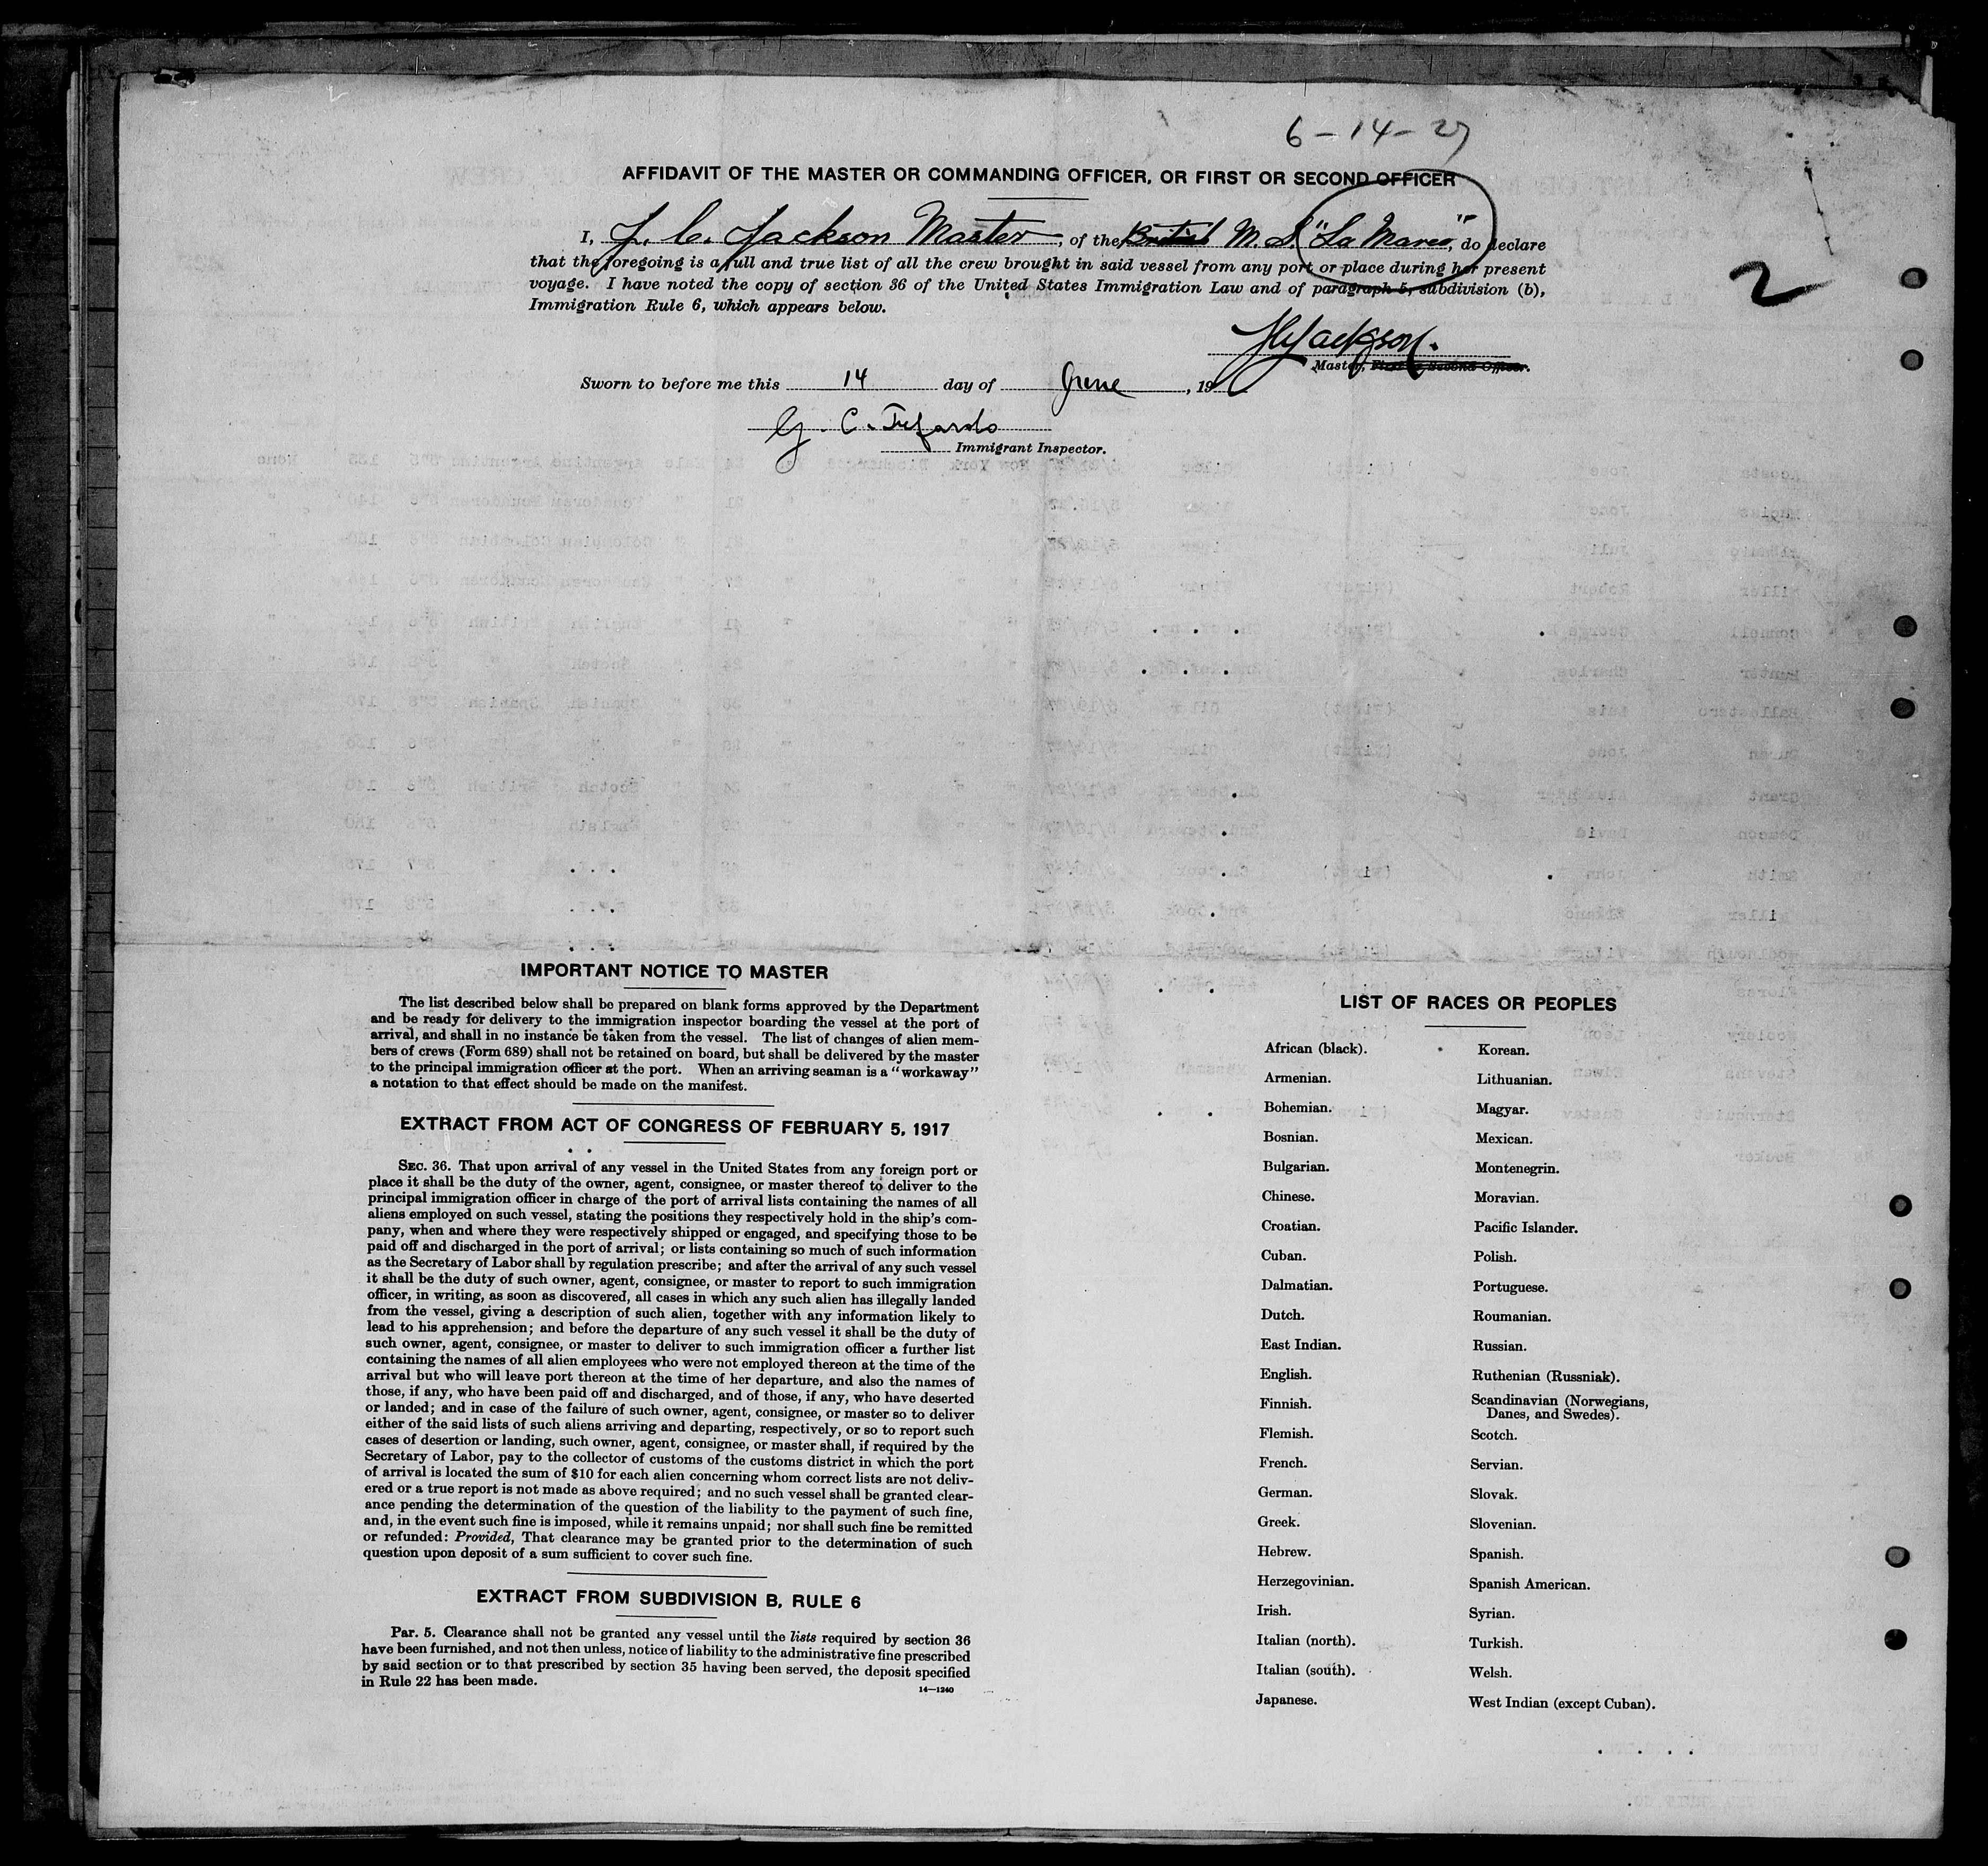 6-14-27
AFFIDAVIT OF THE MASTER OR COMMANDING OFFICER, OR FIRST OR SECOND OFFICER
I, J. C. Jackson Master, of the British M. S. "La Marea", do declare
that the foregoing is a full and true list of all the crew brought in said vessel from any port or place during her present
voyage. I have noted the copy of section 36 of the United States Immigration Law and of paragraph 5, subdivision (b),
Immigration Rule 6, which appears below.
2
Jackson.
Master, First or Second Officer.
Sworn to before me this 14 day of June, 19
G. C.
Immigrant Inspector.
IMPORTANT NOTICE TO MASTER
The list described below shall be prepared on blank forms approved by the Department
and be ready for delivery to the immigration inspector boarding the vessel at the port of
arrival, and shall in no instance be taken from the vessel. The list of changes of alien mem-
bers of crews (Form 689) shall not be retained on board, but shall be delivered by the master
to the principal immigration officer at the port. When an arriving seaman is a "workaway"
a notation to that effect should be made on the manifest.
EXTRACT FROM ACT OF CONGRESS OF FEBRUARY 5, 1917
SEC. 36. That upon arrival of any vessel in the United States from any foreign port or
place it shall be the duty of the owner, agent, consignee, or master thereof to deliver to the
principal immigration officer in charge of the port of arrival lists containing the names of all
aliens employed on such vessel, stating the positions they respectively hold in the ship's com-
pany, when and where they were respectively shipped or engaged, and specifying those to be
paid off and discharged in the port of arrival; or lists containing so much of such information
as the Secretary of Labor shall by regulation prescribe; and after the arrival of any such vessel
it shall be the duty of such owner, agent, consignee, or master to report to such immigration
officer, in writing, as soon as discovered, all cases in which any such alien has illegally landed
from the vessel, giving a description of such alien, together with any information likely to
lead to his apprehension; and before the departure of any such vessel it shall be the duty of
such owner, agent, consignee, or master to deliver to such immigration officer a further list
containing the names of all alien employees who were not employed thereon at the time of the
arrival but who will leave port thereon at the time of her departure, and also the names of
those, if any, who have been paid off and discharged, and of those, if any, who have deserted
or landed; and in case of the failure of such owner, agent, consignee, or master so to deliver
either of the said lists of such aliens arriving and departing, respectively, or so to report such
cases of desertion or landing, such owner, agent, consignee, or master shall, if required by the
Secretary of Labor, pay to the collector of customs of the customs district in which the port
of arrival is located the sum of $10 for each alien concerning whom correct lists are not deliv-
ered or a true report is not made as above required; and no such vessel shall be granted clear-
ance pending the determination of the question of the liability to the payment of such fine,
and, in the event such fine is imposed, while it remains unpaid; nor shall such fine be remitted
or refunded: Provided, That clearance may be granted prior to the determination of such
question upon deposit of a sum sufficient to cover such fine.
EXTRACT FROM SUBDIVISION B, RULE 6
Par. 5. Clearance shall not be granted any vessel until the lists required by section 36
have been furnished, and not then unless, notice of liability to the administrative fine prescribed
by said section or to that prescribed by section 35 having been served, the deposit specified
in Rule 22 has been made.
14—1240
LIST OF RACES OR PEOPLES
African (black).
Armenian.
Bohemian.
Bosnian.
Bulgarian.
Chinese.
Croatian.
Cuban.
Dalmatian.
Dutch.
East Indian.
English.
Finnish.
Flemish.
French.
German.
Greek.
Hebrew.
Herzegovinian.
Irish.
Italian (north).
Italian (south).
Japanese.
Korean.
Lithuanian.
Magyar.
Mexican.
Montenegrin.
Moravian.
Pacific Islander.
Polish.
Portuguese.
Roumanian.
Russian.
Ruthenian (Russniak).
Scandinavian (Norwegians,
Danes, and Swedes).
Scotch.
Servian.
Slovak.
Slovenian.
Spanish.
Spanish American.
Syrian.
Turkish.
Welsh.
West Indian (except Cuban).